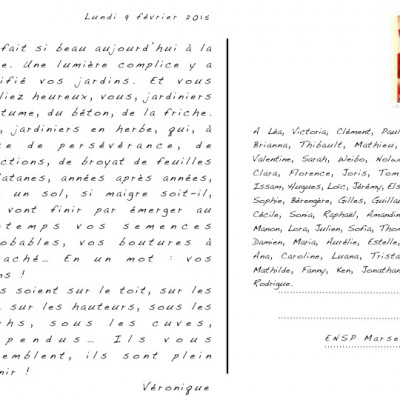 Lundi 9 février 2015
fait si beau aujourd'hui à la
e. Une lumière complice y a
ifié vos jardins. Et vous
liez heureux, vous, jardiniers
tume, du béton, de la friche.
, jardiniers en herbe, qui, à
e de persévérance, de
ctions, de broyat de feuilles
latanes, années après années,
un sol, si maigre soit-il,
vont finir par émerger au
temps vos semences
obables, vos boutures à
aché... En un mot : vos
ns !
s soient sur le toit, sur les
, sur les hauteurs, sous les
rhs, sous les cuves,
pendus... Ils vous
semblent, ils sont plein
nir !
Véronique
A Léa, Victoria, Clément, Paul
Brianna, Thibault, Mathieu,
Valentine, Sarah, Weibo, Nolw
Clara, Florence, Joris, Tom
Issam, Hugues, Loïc, Jérémy, Els
Sophie, Bérengère, Gilles, Guillau
Cécile, Sonia, Raphaël, Amandin
Manon, Lora, Julien, Sofia, Tho
Damien, Maria, Aurélie, Estelle,
Ana, Caroline, Luana, Trista
Mathilde, Fanny, Ken, Jonathan
Rodrigue.
ENSP Marse